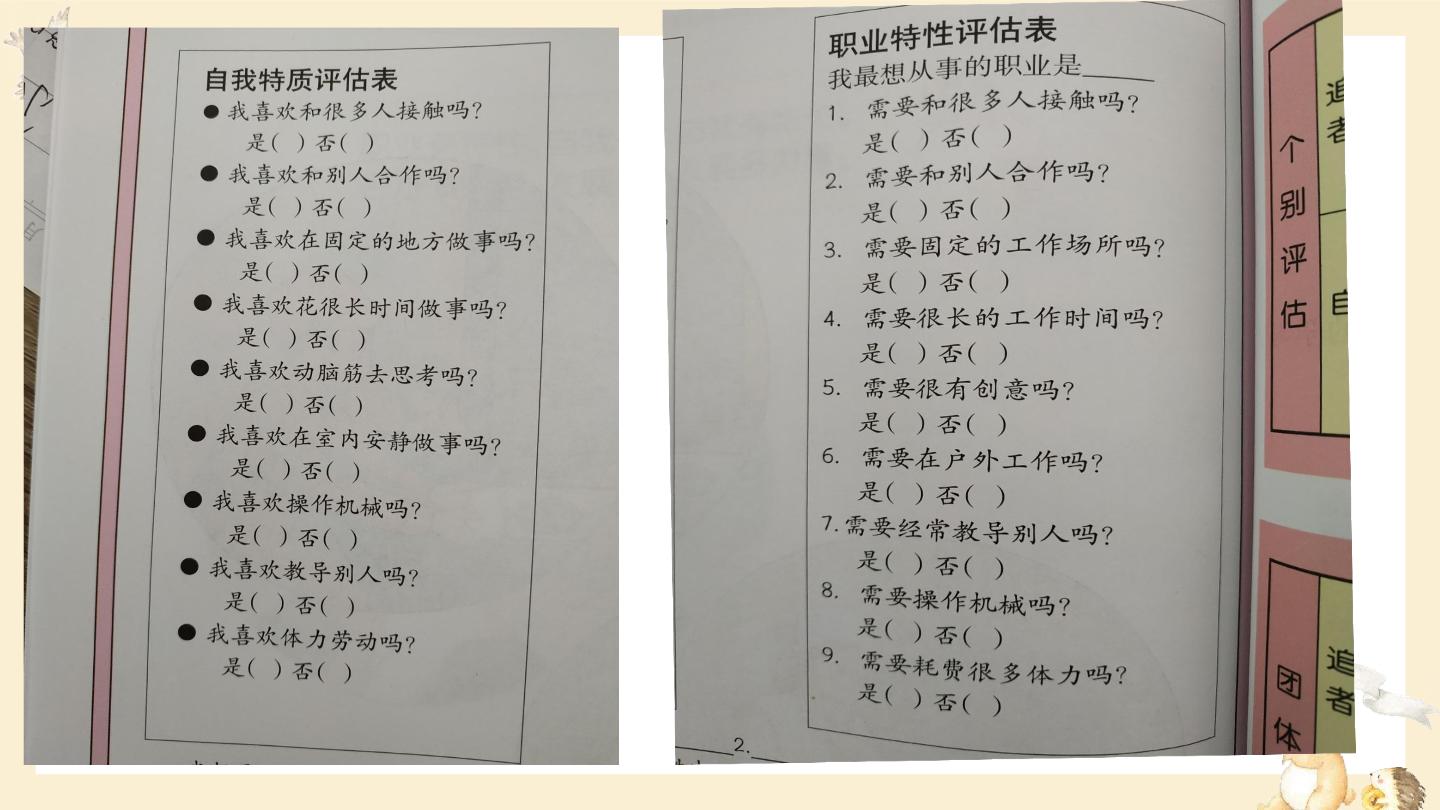 自我特质评估表
● 我喜欢和很多人接触吗?
是( ) 否( )
● 我喜欢和别人合作吗?
是( ) 否( )
● 我喜欢在固定的地方做事吗?
是( ) 否( )
● 我喜欢花很长时间做事吗?
是( ) 否( )
● 我喜欢动脑筋去思考吗?
是( ) 否( )
● 我喜欢在室内安静做事吗?
是( ) 否( )
● 我喜欢操作机械吗?
是( ) 否( )
● 我喜欢教导别人吗?
是( ) 否( )
● 我喜欢体力劳动吗?
是( ) 否( )
职业特性评估表
我最想从事的职业是______
1. 需要和很多人接触吗?
是( ) 否( )
2. 需要和别人合作吗?
是( ) 否( )
3. 需要固定的工作场所吗?
是( ) 否( )
4. 需要很长的工作时间吗?
是( ) 否( )
5. 需要很有创意吗?
是( ) 否( )
6. 需要在户外工作吗?
是( ) 否( )
7. 需要经常教导别人吗?
是( ) 否( )
8. 需要操作机械吗?
是( ) 否( )
9. 需要耗费很多体力吗?
是( ) 否( )
______2.__
个别评估
追
者
自
团体
追
者